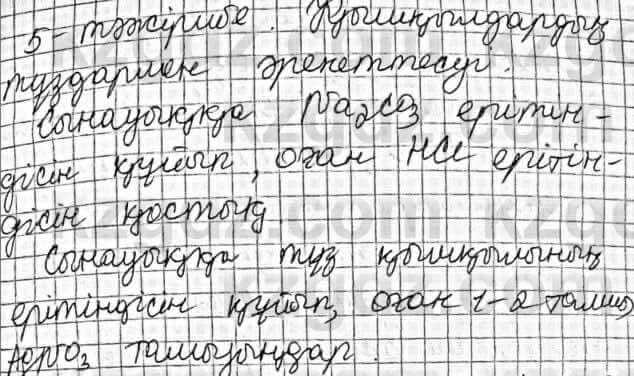 5-тәжірибе. Қышқылдардың
тұздармен әрекеттесуі.
Сынауыққа Na2CO3 ерітін-
дісін құйып, оған HCl ерітін-
дісін қостық
Сынауыққа тұз қышқылының
ерітіндісін құйып, оған 1-2 тамшы
AgNO3 тамызыңдар.